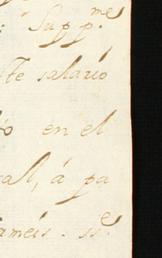 : Supp.me
Te salario
o en el
al, á pa
améis. sse